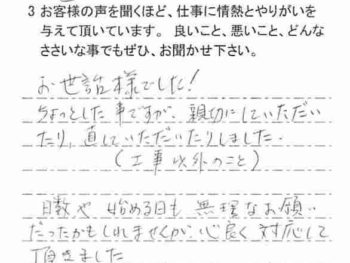 3 お客様の声を聞くほど、仕事に情熱とやりがいを
与えて頂いています。 良いこと、悪いこと、どんな
ささいな事でもぜひ、お聞かせ下さい。
お世話様でした!
ちょっとした事ですが、親切にしていただい
たり、直していただいたりしました.
(工事以外のこと)
日数や 始める日も 無理なお願い
だったかもしれませんが、心良く対応して
頂きました